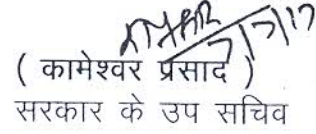 ( कामेश्वर प्रसाद )
सरकार के उप सचिव